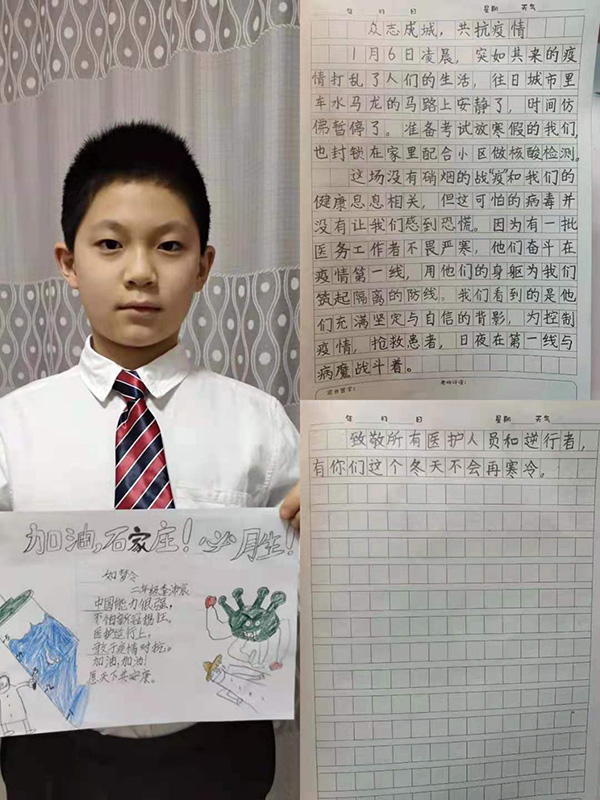 加油,石家庄!必胜!
如梦令
二年级
中国能力很强,
不怕新冠猖狂。
医护逆行上,
敢于疫情对抗。
加油,加油!
愿天下共安康。
年 月 日 星期 天气
众志成城,共抗疫情
1月6日凌晨,突如其来的疫
情打乱了人们的生活,往日城市里
车水马龙的马路上安静了,时间仿
佛暂停了。准备考试放寒假的我们,
也封锁在家里配合小区做核酸检测。
这场没有硝烟的战“疫”和我们的
健康息息相关,但这可怕的病毒并
没有让我们感到恐慌。因为有一批
医务工作者不畏严寒,他们奋斗在
疫情第一线,用他们的身躯为我们
筑起隔离的防线。我们看到的是他
们充满坚定与自信的背影,为控制
疫情,抢救患者,日夜在第一线与
病魔战斗着。
年 月 日 星期 天气
致敬所有医护人员和逆行者,
有你们这个冬天不会再寒冷。